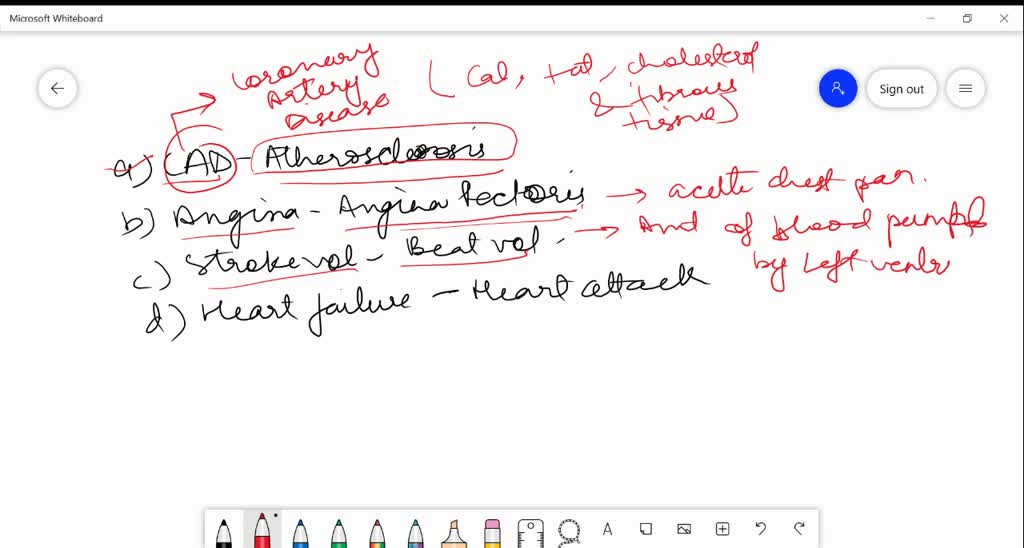 Microsoft Whiteboard
Sign out
Coronary Artery Disease
(Cal, fat, cholesterol & fibrous tissue)
a) CAD - Atherosclerosis
b) Angina - Angina Pectoris → acute chest pain.
c) Stroke vol - Beat vol. → Amt of blood pumped by Left ventr
d) Heart failure - Heart attack
A